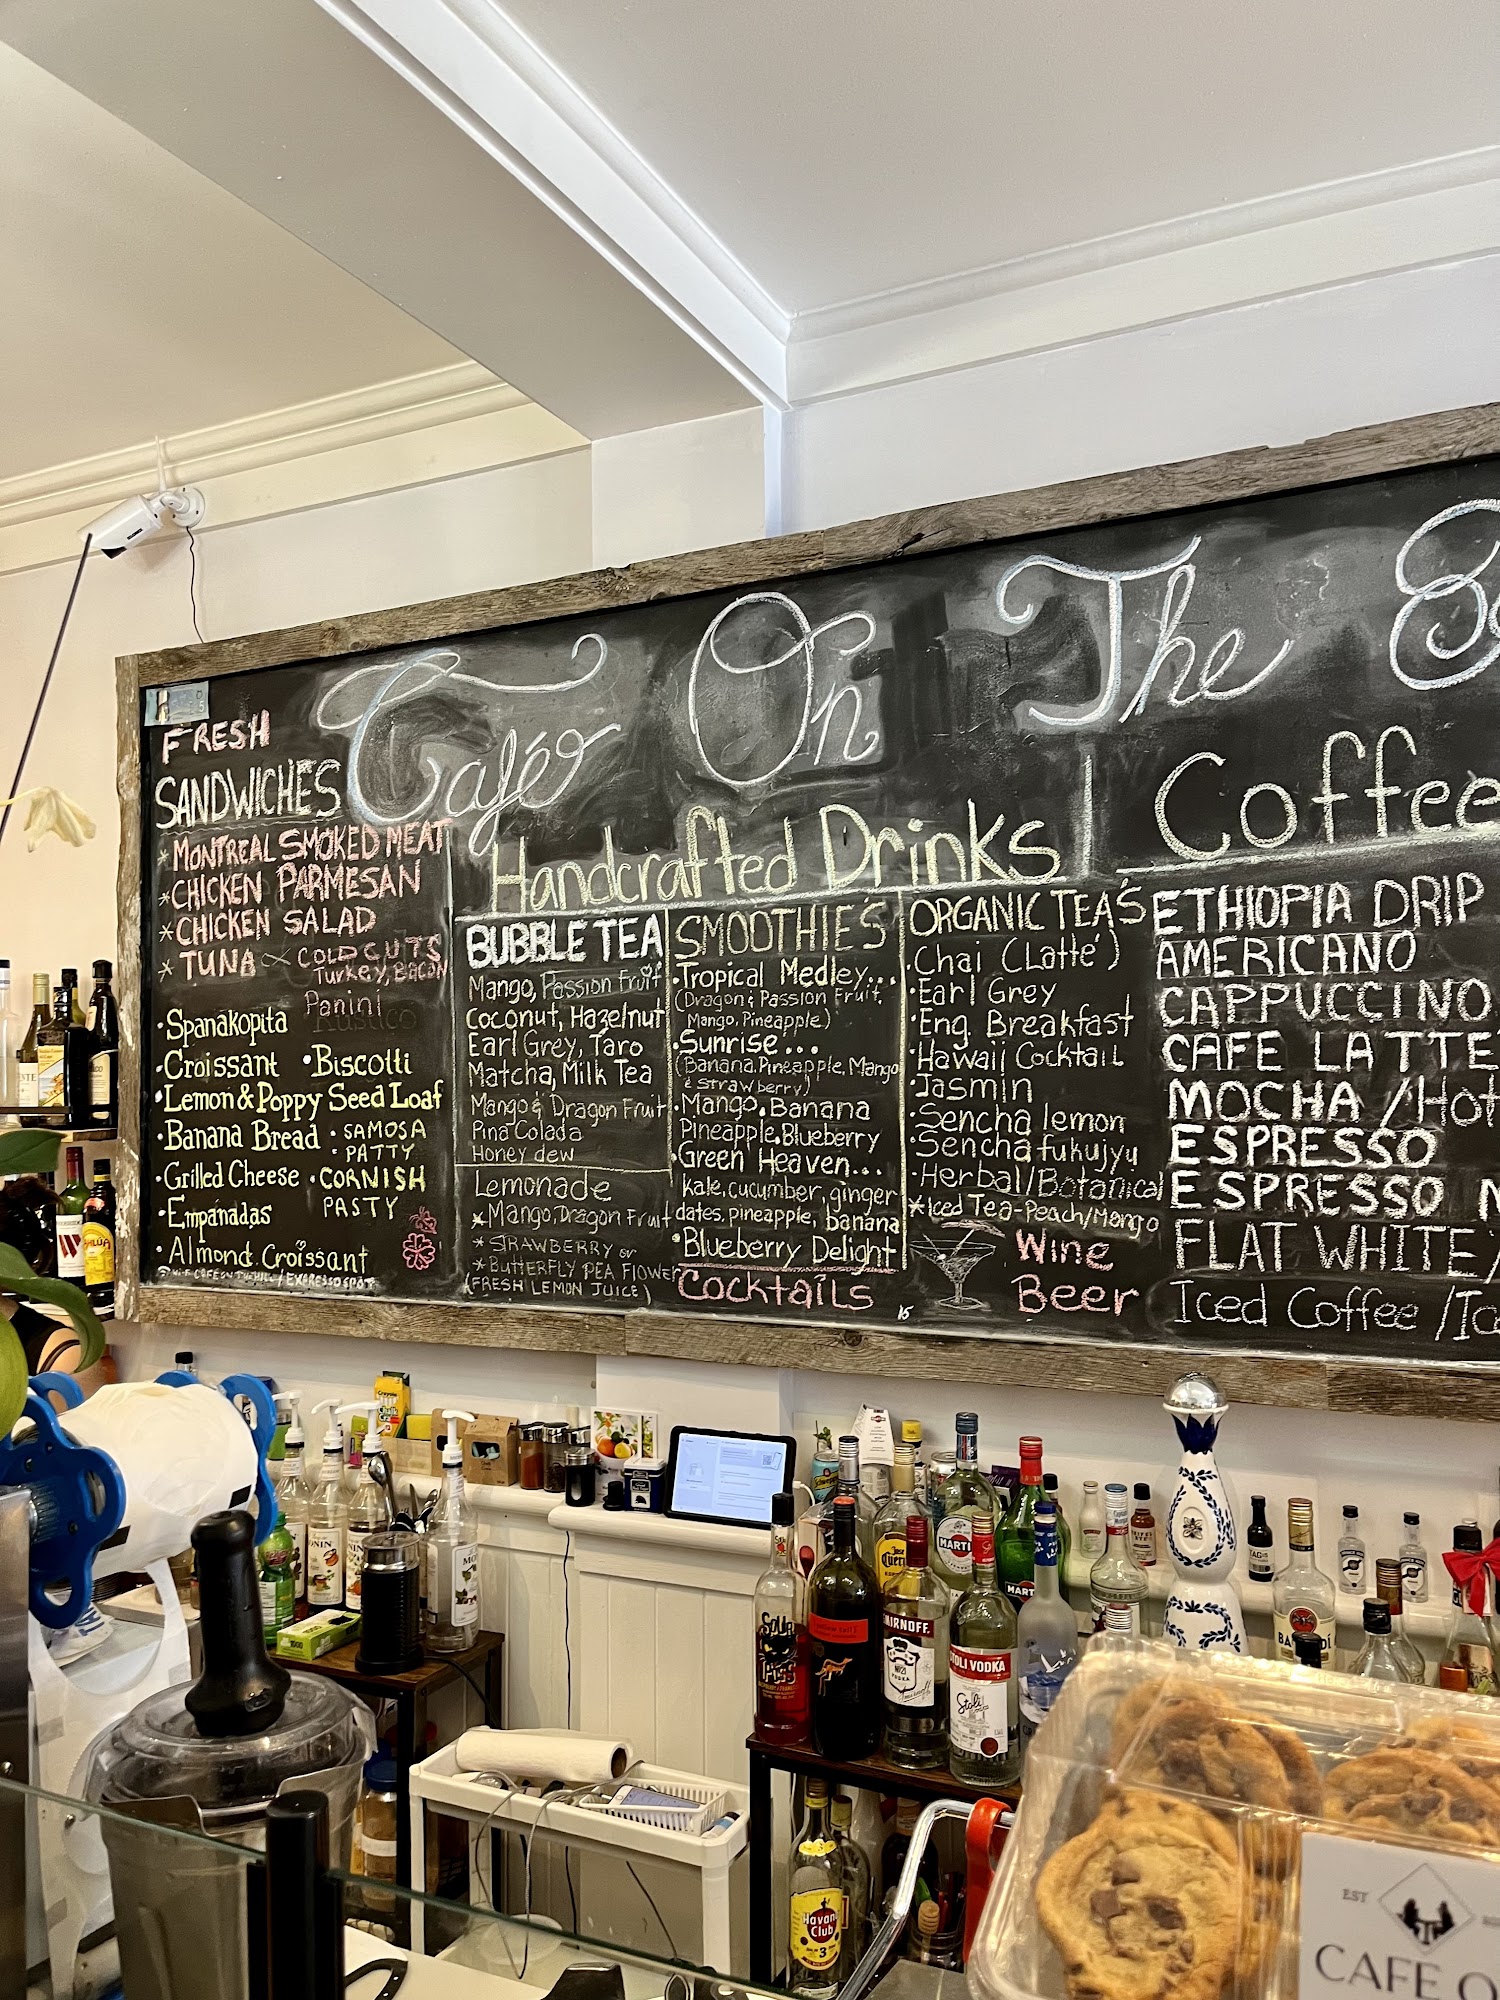 Café On The
FRESH
SANDWICHES
* MONTREAL SMOKED MEAT
* CHICKEN PARMESAN
* CHICKEN SALAD
* TUNA
COLD CUTS
Turkey, BACON
Panini
Rustico
• Spanakopita
• Croissant • Biscotti
• Lemon & Poppy Seed Loaf
• Banana Bread • SAMOSA
PATTY
• Grilled Cheese • CORNISH
PASTY
• Empanadas
• Almond Croissant
Handcrafted Drinks
BUBBLE TEA
Mango, Passion Fruit
Coconut, Hazelnut
Earl Grey, Taro
Matcha, Milk Tea
Mango & Dragon Fruit
Pina Colada
Honey dew
Lemonade
* Mango, Dragon Fruit
* STRAWBERRY or
* BUTTERFLY PEA FLOWER
(FRESH LEMON JUICE)
SMOOTHIE'S
• Tropical Medley...
(Dragon & Passion Fruit,
Mango, Pineapple)
• Sunrise...
(Banana, Pineapple, Mango
& Strawberry)
• Mango, Banana
Pineapple, Blueberry
• Green Heaven...
kale, cucumber, ginger
dates, pineapple, banana
• Blueberry Delight
Cocktails
ORGANIC TEA'S
• Chai (Latté)
• Earl Grey
• Eng. Breakfast
• Hawaii Cocktail
• Jasmin
• Sencha lemon
• Sencha fukujyu
• Herbal/Botanical
* Iced Tea-Peach/Mango
Wine
Beer
Coffee
ETHIOPIA DRIP
AMERICANO
CAPPUCCINO
CAFE LATTE
MOCHA /Hot
ESPRESSO
ESPRESSO
FLAT WHITE/
Iced Coffee /Ice
SOUR
PUSS
[yellow tail]
SMIRNOFF
No21
VODKA
STOLI VODKA
Stoli
MARTINI
Jose
Cuervo
Havana
Club
3
EST
CAFE O